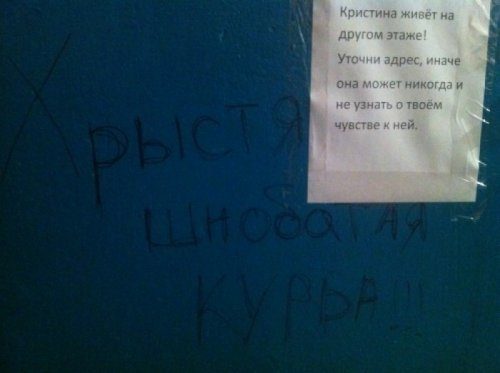 Кристина живёт на
другом этаже!
Уточни адрес, иначе
она может никогда и
не узнать о твоём
чувстве к ней.
Хрыстя
шнобатая
КУРВА!!!